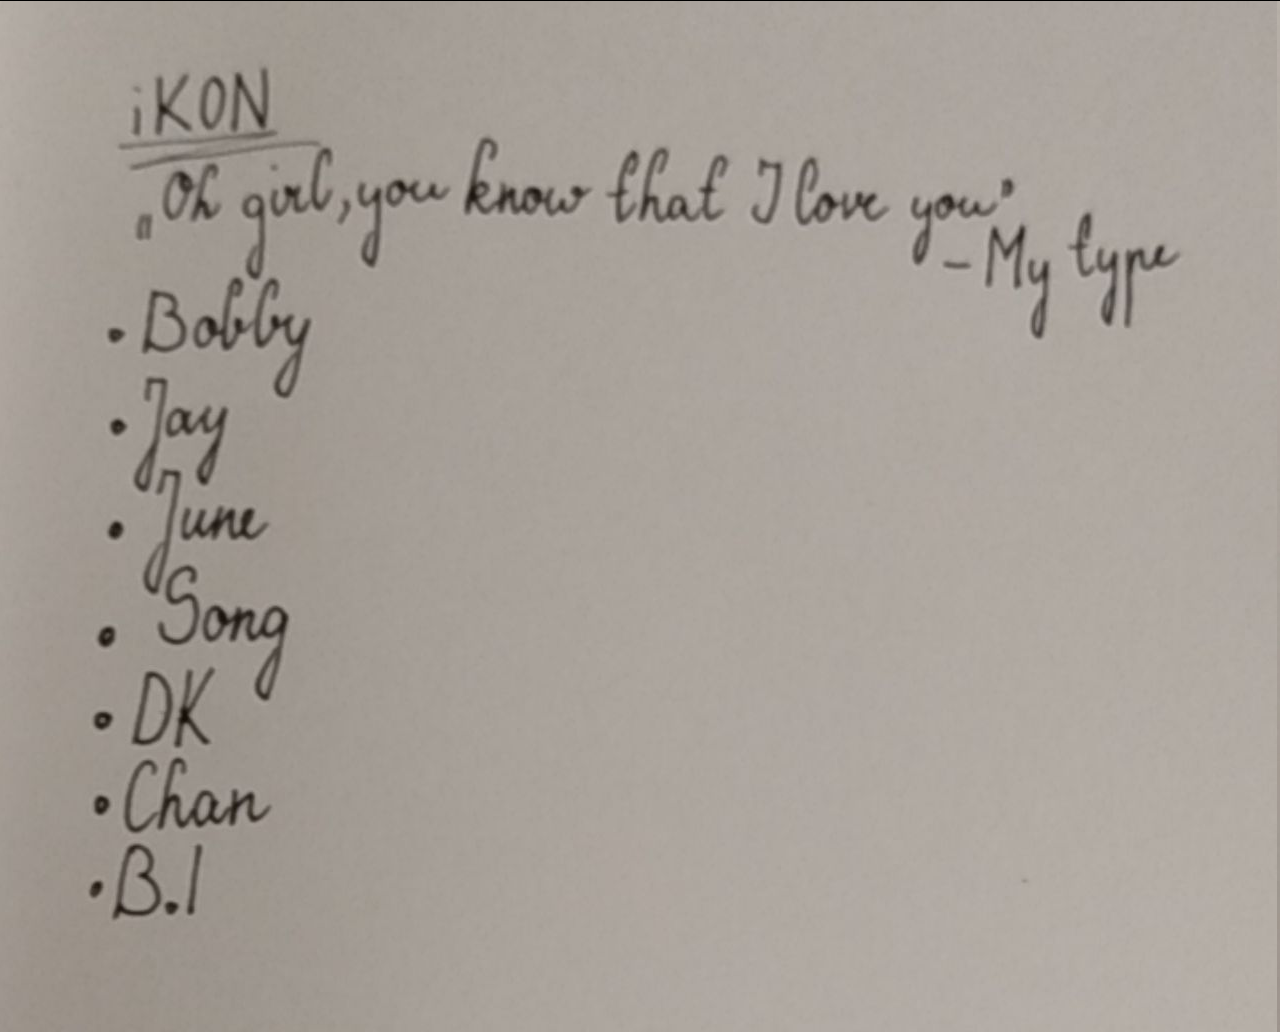 iKON
„Oh girl, you know that I love you”
– My type
• Bobby
• Jay
• June
• Song
• DK
• Chan
• B.I